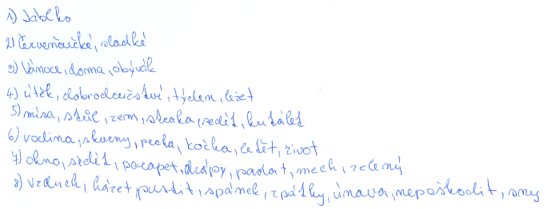 1) Jablko
2) Červeňoučké, sladké
3) Vánoce, doma, obývák
4) útěk, dobrodružství, týden, ležet
5) mísa, stůl, zem, straka, sedět, kutálet
6) rodina, skvrny, pecka, kočka, letět, život
7) okno, sedět, parapet, drápy, padat, mech, zelený
8) vzduch, házet, pustit, spánek, zpátky, únava, nepoškodit, sny